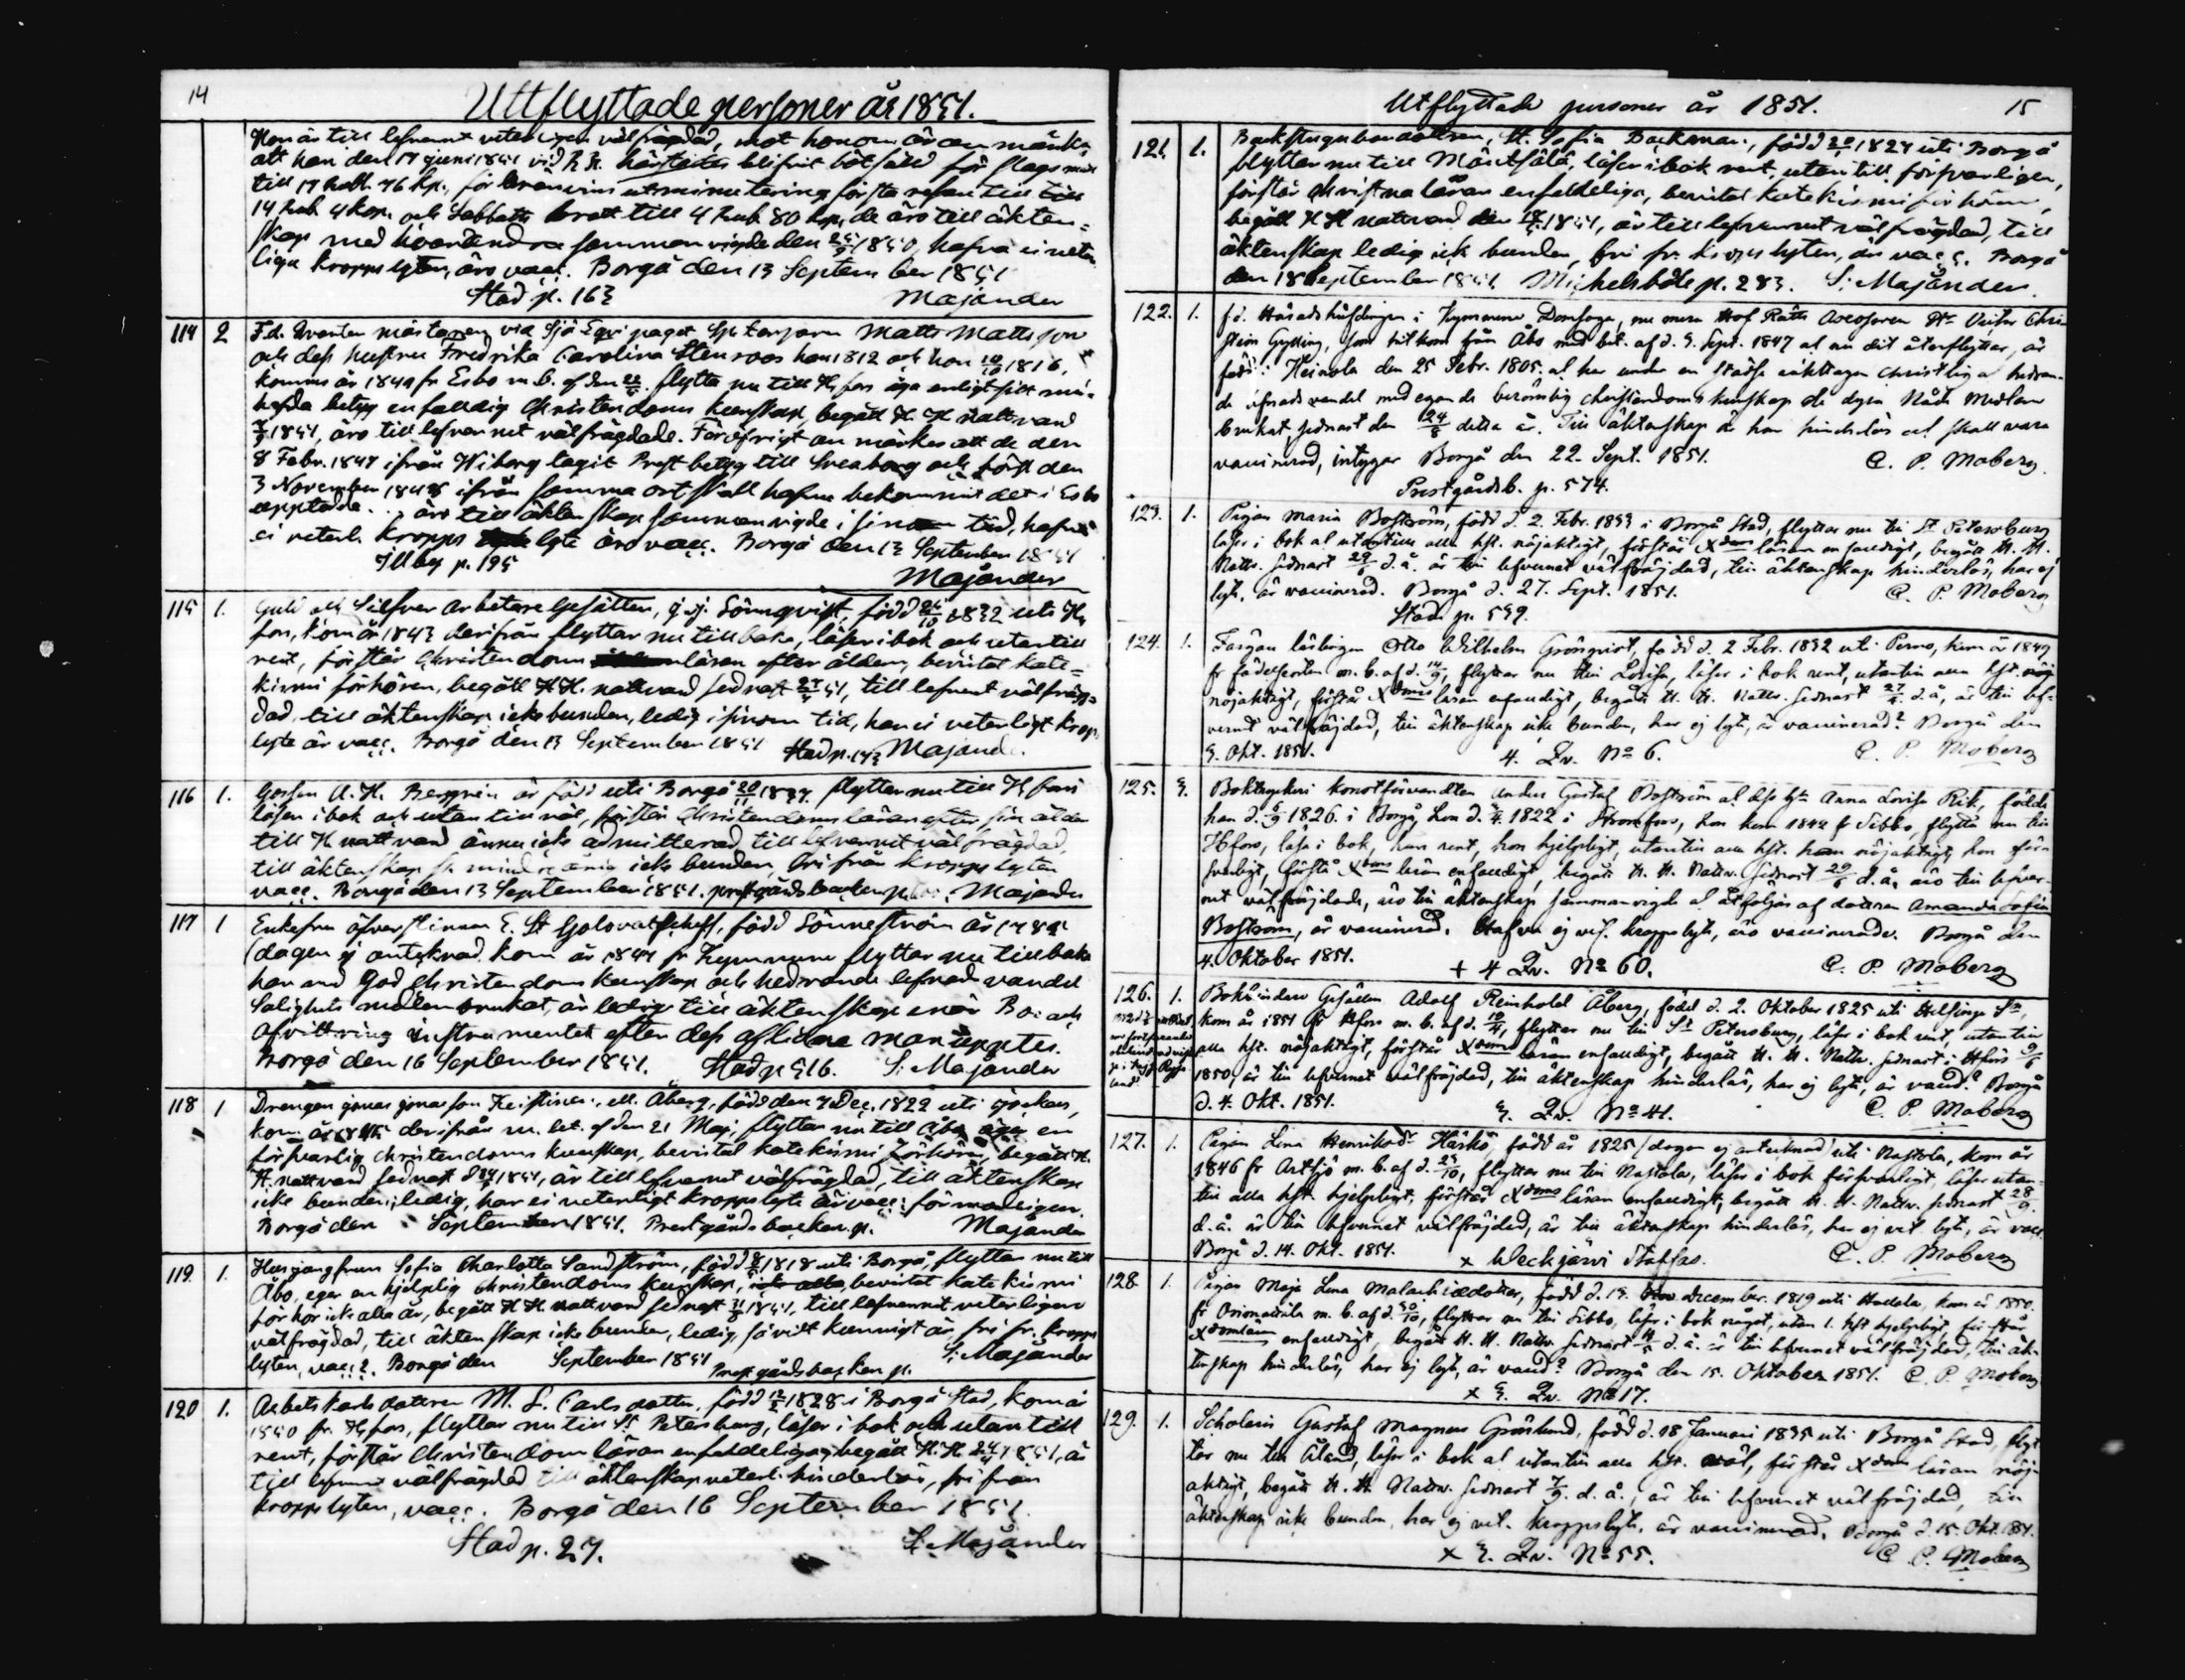 14
Uttflyttade personer år 1851.
Hon är till lefvernet veterligen välfrägdad, mot honom är an märka
att han den 17 juni 1841 vid R. R. blifvit bötfäld för slagsmål
till 17 rub. 76 kp., för brännvins utminutering första resan till
14 rub. 4 kop. och Sabbats brott till 4 rub. 80 kop, de äro till äkten=
skap med hvarandra sammanvigde den 1840, hafva ei veter
liga kropps lyten, äro vacc. Borgå den 13 September 1851
Stad p. 163 Majander
114 2 F.d. Qvarter mästaren vid Sjö Equipaget Matts Mattsson
och dess hustru Fredrika Carolina Stenroos han 1812 och hon 10/10 1816,
komne år 1849 fr Esbo m. b. af den flytta nu till H:fors äga enligt sitt
hafda betyg enfaldig Christendoms kunskap, begått H. H. Nattvard
1851, äro till lefvernet välfrägdade. För öfrigt an märkes att de den
8 Febr. 1847 ifrån Wiborg tagit Prest betyg till Sveaborg och först den
3 November 1848 ifrån samma ort skall hafva bekommit det i Esbo
äro till äktenskap sammanvigde i sinom tid, hafva
ei veterl. kropps lyte äro vacc. Borgå den 13 September 1851
Illby p. 195
Majander
115 1. Guld och Silfver arbetare Gesällen, G. J. Sönnqvist, född 24/10 1832 uti H:
fors, kom år 1843 derifrån flyttar nu tillbaka, läser i bok och utan till
rent, förstår Christendoms läran efter åldern, bevistat kate=
kismi förhören, begått H. H. nattvard sednast, till lefvernet välfräg=
dad, till äktenskap icke bunden, ledig i sinom tid, har ei veterligt kropps
lyte är vacc. Borgå den 13 September 1851 Stad p. 173 Majander
116 1. Gossen A. H. Berggrén är född uti Borgå 20/11 1837. flyttar nu till H:fors
läser i bok och utan till väl, förstår Christendoms läran efter sin ålder
till H nattvard ännu icke admitterad, till lefvernet välfrägdad,
till äktenskap icke bunden, fri från kropps lyten
vacc. Borgå den 13 September 1851. prestgårdsbacken Majander
117 1 Enkefru öfverstinnan E. St Golovatscheff, född Sönneström år 1785
(dagen ej antecknad. kom år 1847 fr Kymmene flyttar nu tillbaka
har med God Christendoms kunskap och hedrande lefnads vandel
Salighets medlen brukat, är ledig till äktenskap enär Bo: och
afvittring instrumentet efter dess aflidne man uppetes.
Borgå den 16 September 1851. Stad p 516. S. Majander
118 1 Drengen Jonas Jonasson ell. Åberg, född den 7 Dec. 1822 uti Jockas,
kom år 1845 derifrån m. bet. af den 21 Maj, flyttar nu till Åbo äger en
försvarlig christendoms kunskap, bevistat katekismi förhören, begått H.
H. nattvard sednast 1851, är till lefvernet välfrägdad, till äktenskap
icke bunden, ledig, har ei veterligt kropps lyte är vacc: förmodligen.
Borgå den September 1851. Prestgårds backen p. Majander
119 1. Husjungfrun Sofia Charlotta Sandström, född 1818 uti Borgå, flyttar nu till
Åbo, eger en hjelplig christendoms kunskap, bevistat katekismi
förhör icke alla år, begått H. H. nattvard sednast 1851, till lefvernet veterligen
välfrägdad, till äktenskap icke bunden, ledig, så vidt kunnigt är, fri fr. kropps
lyten, vacc?. Borgå den September 1851 S. Majander
Prestgårdsbacken p.
120 1. Arbetskarls dottren M. L. Carls dotter, född 1828 i Borgå Stad, kom år
1850 fr. H:fors, flyttar nu till St. Petersburg, läser i bok och utantill
rent, förstår Christendoms läran enfaldeligen, begått H. H. 1851, är
till lefvernet välfrägdad till äktenskap veterl. hinderlös, fri från
kropps lyten, vacc. Borgå den 16 September 1851.
Stad p. 27. S. Majander
Utflyttade personer år 1851. 15
121. 1. Backstugubondottren, H. Sofia Backman, född 1827 uti Borgå
flyttar nu till Mäntsälä, läser i bok rent, utantill försvarligen,
förstår christna läran enfaldeliga, bevistat katekismi förhören,
begått H H nattvard den 1851, är till lefvernet välfrägdad, till
äktenskap ledig ick bunden, fri fr. kropps lyten, är vacc. Borgå
den 18 September 1851. Mickelsböle p. 283. S. Majander.
122. 1. fd. Häradshöfdingen i Kymmene Domsaga, nu mera Hof Rätts Assessoren Hr Victor Chri-
stian Gylling, som hit kom från Åbo med bet. af d. 9. Sept. 1847 at nu dit återflyttar, är
född i Heinola den 25 Febr. 1805. at har under en städse iakttagen christlig at hedran-
de lefnadsvandel med egande berömlig christendoms kunskap de dyra Nåde Medlen
brukat sednast den 24/8 detta år. Till äktenskap är han hinderlös at skall vara
vaccinerad, intygar Borgå den 22. Sept. 1851. C. P. Moberg.
Prestgårdsb. p. 574.
123. 1. Pigan Maria Boström, född d. 2. Febr. 1833 i Borgå Stad, flyttar nu till St Petersburg
läser i bok at utantill alla hst. nöjaktigt, förstår Xdoms läran enfaldigt, begått H. H.
Nattv. sednast 29/6 d. å. är till lefvernet välfräjdad, till äktenskap hinderlös, har ej
lyte, är vaccinerad. Borgå d. 27. Sept. 1851. C. P. Moberg
Stad p. 599.
124. 1. Färgare lärlingen Otto Wilhelm Grönqvist, född d. 2 Febr. 1832 uti Perno, kom år 1849
fr födelseorten m. b. af d. 14/9, flyttar nu till Lovisa, läser i bok rent, utantill alla hst.
nöjaktigt, förstår Xdoms läran enfaldigt, begått H. H. Nattv. sednast d. å, är till lef-
vernet välfräjdad, till äktenskap icke bunden, har ej lyte, är vaccinerad? Borgå den
3. Okt. 1851. 4. Qv. No 6. C. P. Moberg
125. 3. Boktryckeri konstförvandten Anders Gustaf Boström at dess hu Anna Lovisa Rik, födde
han d. 1826. i Borgå, hon d. 1822 i Strömfors, hon kom 1844 fr Sibbo, flytta nu till
H:fors, läsa i bok, han rent, hon hjelpligt, utantill alla hst. han nöjaktigt, hon för-
svarligt, förstå Xdoms läran enfaldigt, begått H. H. Nattv. sednast 29/6 d. å. äro till lefver-
net välfräjdade, äro till äktenskap sammanvigde at åtföljas af dottren Amanda Sofia
Boström, är vaccinerad. Hafva ej vet. kroppslyte, äro vaccinerade. Borgå den
4. Oktober 1851. + 4 Qv. No 60. C. P. Moberg
126. 1. Bokbindare Gesällen Adolf Reinhold Åberg, född d. 2. Oktober 1825 uti Helsinge Sn,
kom år 1851 fr Hfors m. b. af d. 10/4, flyttar nu till St Petersburg, läser i bok rent, utantill
alla hst. nöjaktigt, förstår Xdoms läran enfaldigt, begått H. H. Nattv. sednast i Hfors 9/6
1850, är till lefvernet välfräjdad, till äktenskap hinderlös, har ej lyte, är vacc? Borgå
d. 4. Okt. 1851. 3. Qv. No 41. C. P. Moberg
127. 1. Pigan Lena Henriksdr Härkö, född år 1825 (dagen ej antecknad) uti Nastola, kom år
1846 fr Artsjö m. b. af d. 25/10, flyttar nu till Nastola, läser i bok försvarligt, läser utan-
till alla hst. hjelpligt, förstår Xdoms läran enfaldigt, begått H. H. Nattv. sednast 28/9
d. å. är till lefvernet välfräjdad, är till äktenskap hinderlös, har ej vet. lyte, är vacc
Borgå d. 14. Okt. 1851. x Weckjärvi Staffas. C. P. Moberg
128. 1. Pigan Maja Lena Malachiedotter, född d. 19. December 1819 uti, kom år 1850.
fr Orimattila m. b. af d. 30/10, flyttar nu till Sibbo, läser i bok något, utan 1. hst hjelpligt, förstår
Xdomläran enfaldigt, begått H. H. Nattv. sednast d. å. är till lefvernet välfräjdad, till äk-
tenskap hinderlös, har ej lyte, är vacc? Borgå den 15. Oktober 1851. C. P. Moberg
x 3. Qv. No 17.
129. 1. Scholaris Gustaf Magnus Grönlund, född d. 18 Januari 1835 uti Borgå Stad, flyt-
tar nu till Åland, läser i bok at utantill alla hst. väl, förstår Xdoms läran nöj-
aktigt, begått H. H. Nattv. sednast 7/9 d. å., är till lefvernet välfräjdad, till
äktenskap icke bunden, har ej vet. kroppslyte, är vaccinerad. Borgå d. 15. Okt. 1851.
x 3. Qv. No 55. C. P. Moberg